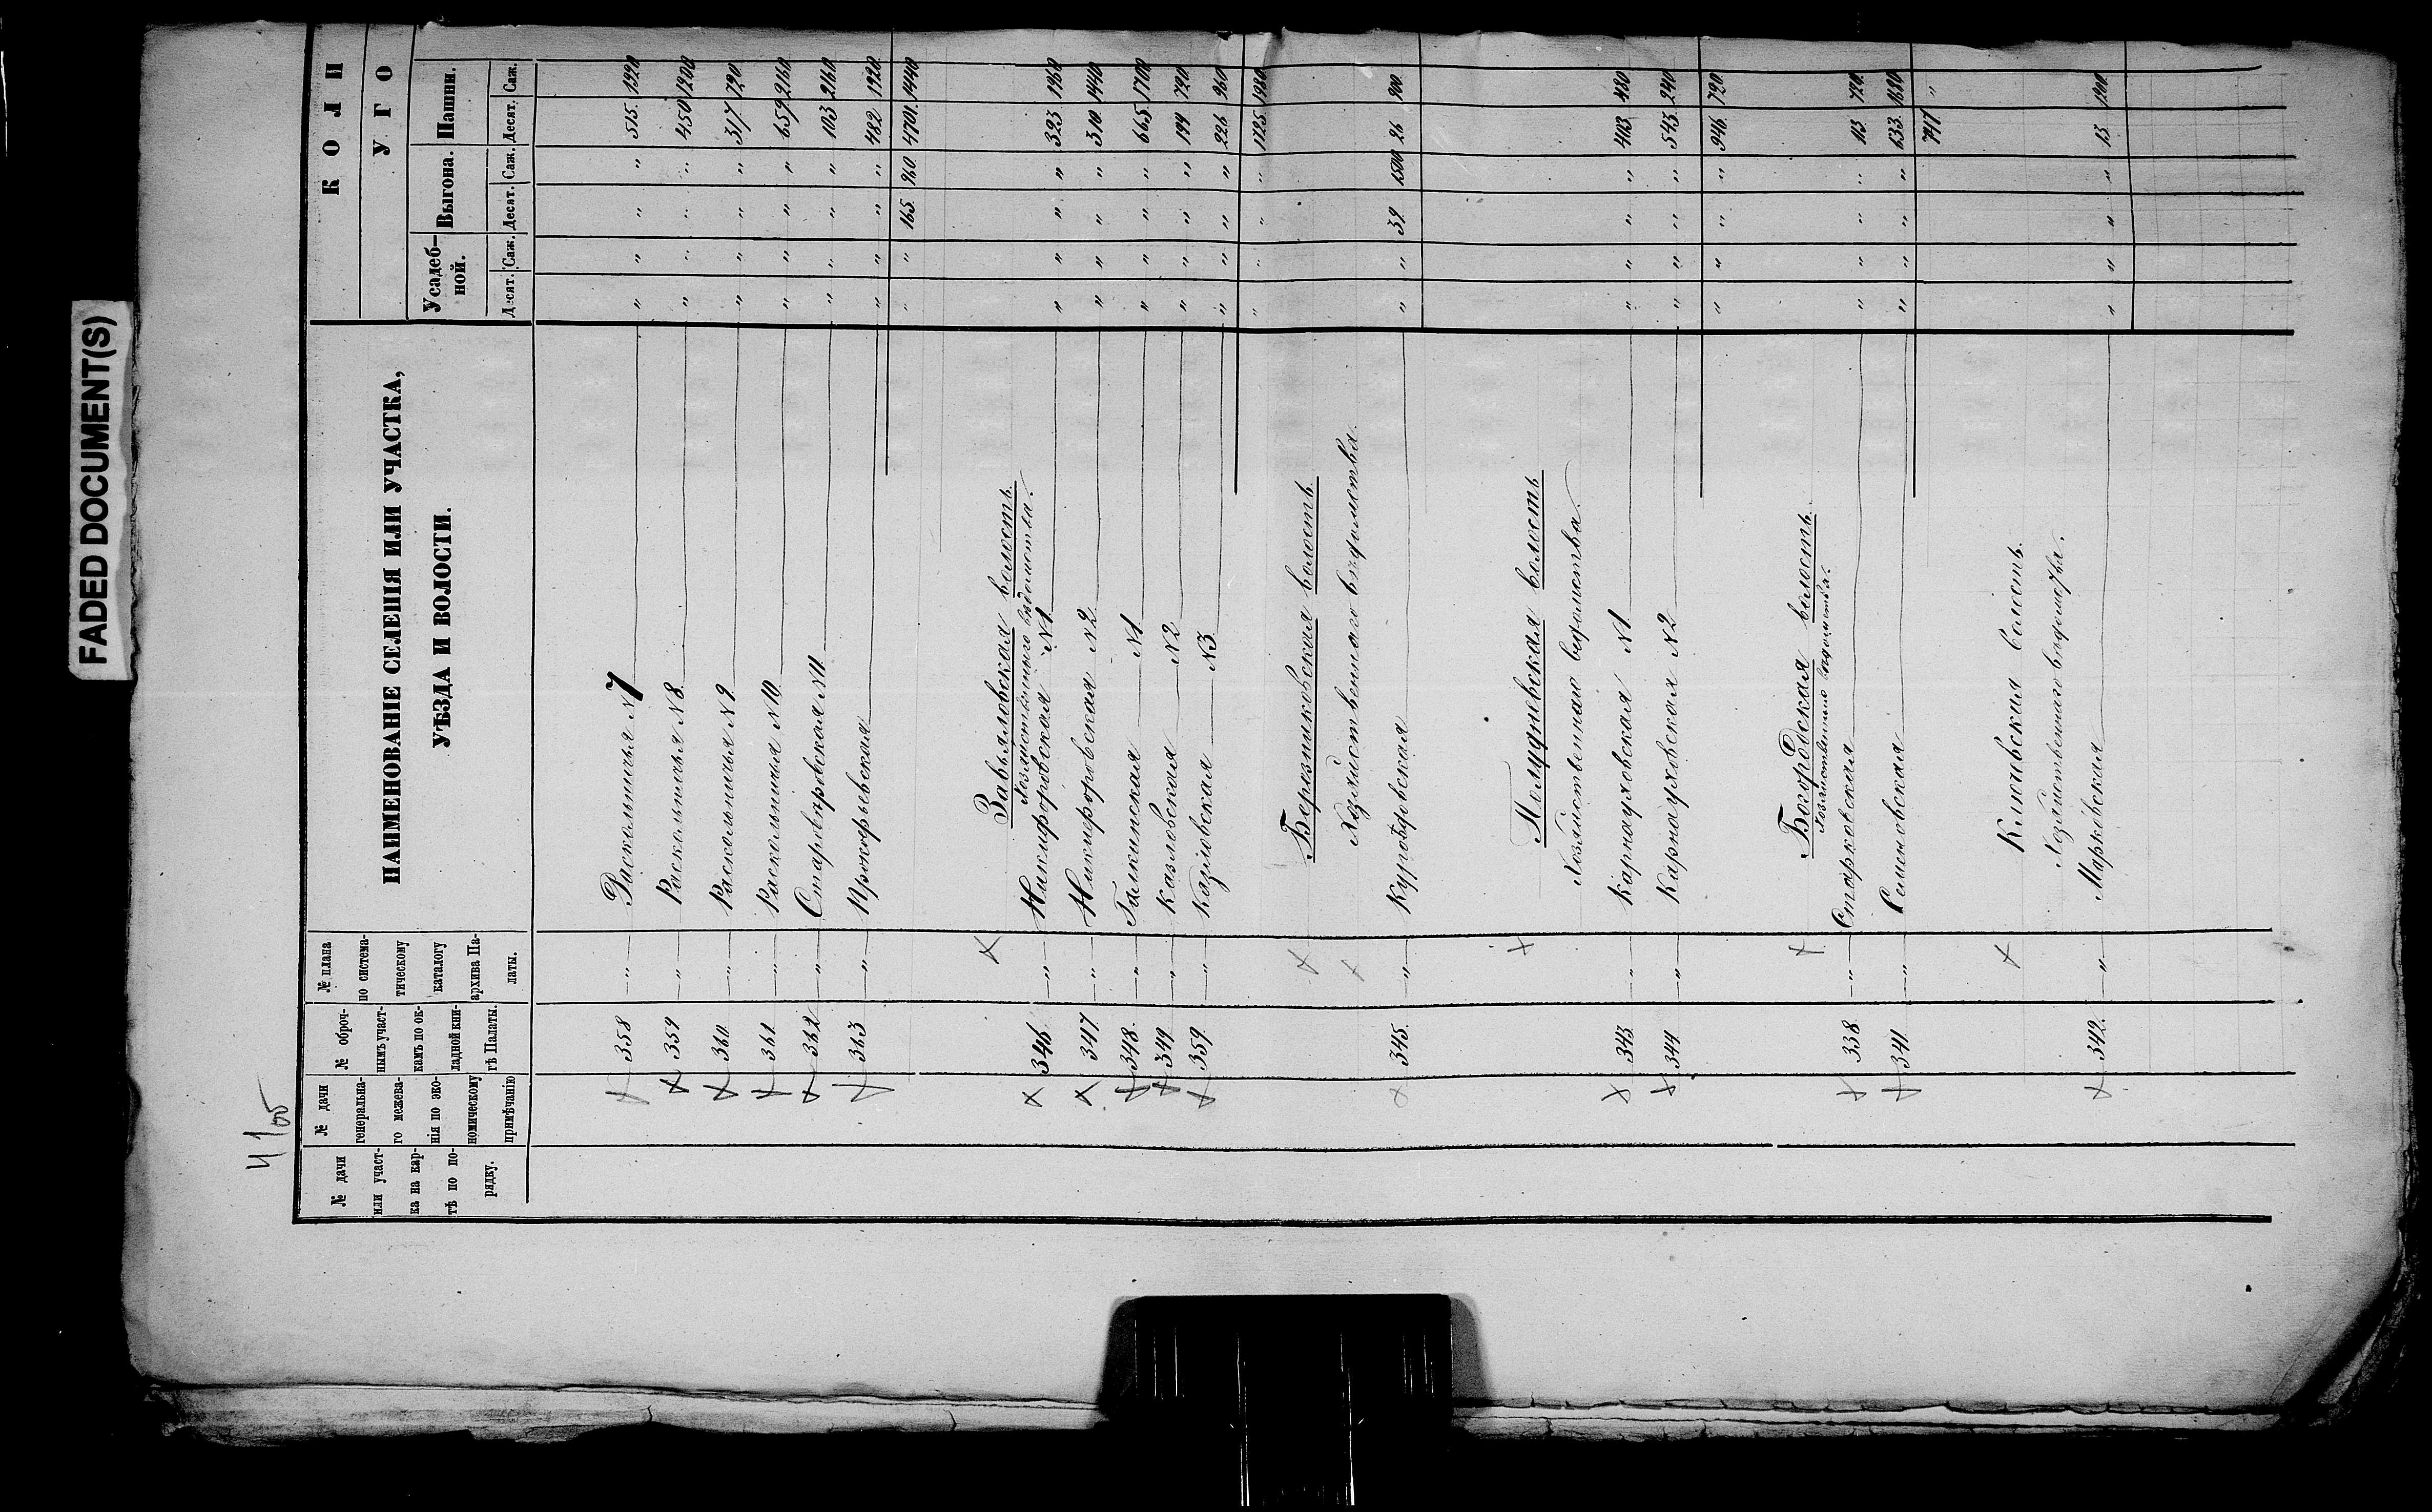 FADED DOCUMENT(S)
41 об
№ дачи или участ-ка на кар-тѣ по по-рядку.
№ дачи генеральна-го межева-нія по эко-номическому примѣчанію
№ оброч-нымъ участ-камъ по ок-ладной кни-гѣ Палаты.
№ плана по система-тическому каталогу архива Па-латы.
НАИМЕНОВАНІЕ СЕЛЕНІЯ ИЛИ УЧАСТКА,
УѢЗДА И ВОЛОСТИ.
КОЛИ
УГО
Усадеб-ной. Выгона. Пашни.
Десят. Саж. Десят. Саж. Десят. Саж.
358 — " — Раскольничья №7 " " " " 515 1920
359 — " — Раскольничья №8 " " " " 450 1200
360 — " — Раскольничья №9 " " " " 317 720
361 — " — Раскольничья №10 " " " " 659 2160
362 — " — Старовѣровская №11 " " " " 103 2160
363 — " — Прокофьевская " " " " 482 1920
" " 165 960 4701 1440
Завьяловская волость
Хозяйственнаго вѣдомства.
346 — " — Никифоровская №1 " " " " 323 1960
347 — " — Никифоровская №2 " " " " 310 1440
348 — " — Галкинская №1 " " " " 665 1700
349 — " — Казловская №2 " " " " 199 720
359 — " — Казловская №3 " " " " 226 960
" " " " 1725
Березниковская волость
Хозяйственнаго вѣдомства.
345 — " — " " 39 1500 26 900
Полудневская волость
Хозяйственнаго вѣдомства.
343 — " — Карнауховская №1 " " " " 403 480
344 — " — Карнауховская №2 " " " " 543 240
" " " " 946 720
Богородская волость
Хозяйственнаго вѣдомства.
338 — " — Старковская " " " " 113 720
341 — " — Семеновская " " " " 633 1680
747 "
Ключевская волость
Хозяйственнаго вѣдомства.
342 — " — Марковская " " " " 13 1200